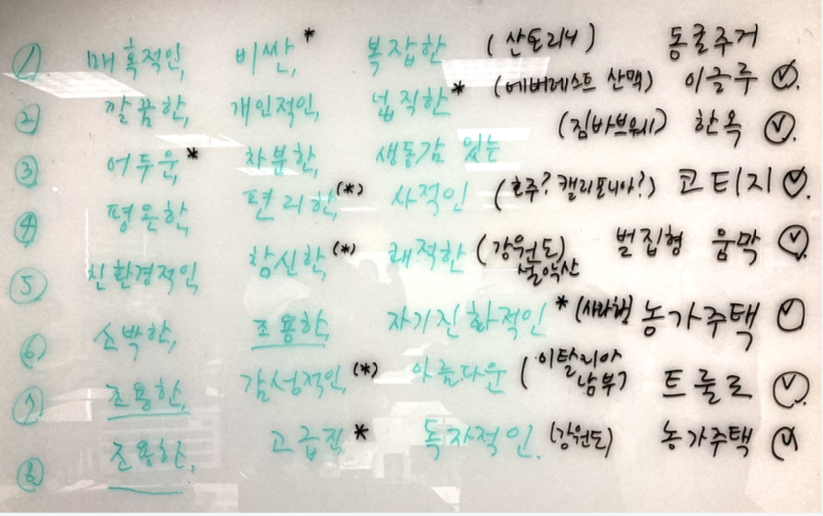 ① 매혹적인, 비싼,* 복잡한 (산토리니) 동굴주거
② 깔끔한, 개인적인, 넓직한* (에버레스트 산맥) 이글루 ✓.
③ 어두운,* 차분한, 생동감 있는 (짐바브웨) 한옥 ✓.
④ 평온한, 편리한,(*) 사적인 (호주? 캘리포니아?) 코티지 ✓.
⑤ 친환경적인 참신한,(*) 쾌적한 (강원도 설악산) 벌집형 움막 ✓.
⑥ 소박한, 조용한, 자기진화적인* 농가주택 ✓
⑦ 조용한, 감성적인,(*) 아름다운 (이탈리아 남부) 트룰로 ✓.
⑧ 조용한, 고급진* 독자적인. (강원도) 농가주택 ✓